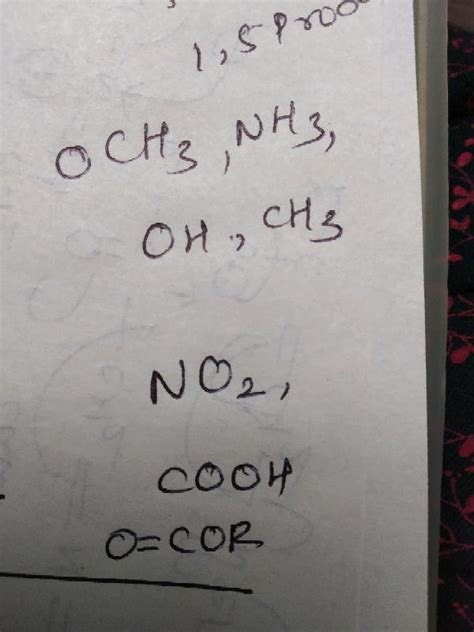 1,5 Proo
OCH3, NH3,
OH, CH3
NO2,
COOH
O=COR